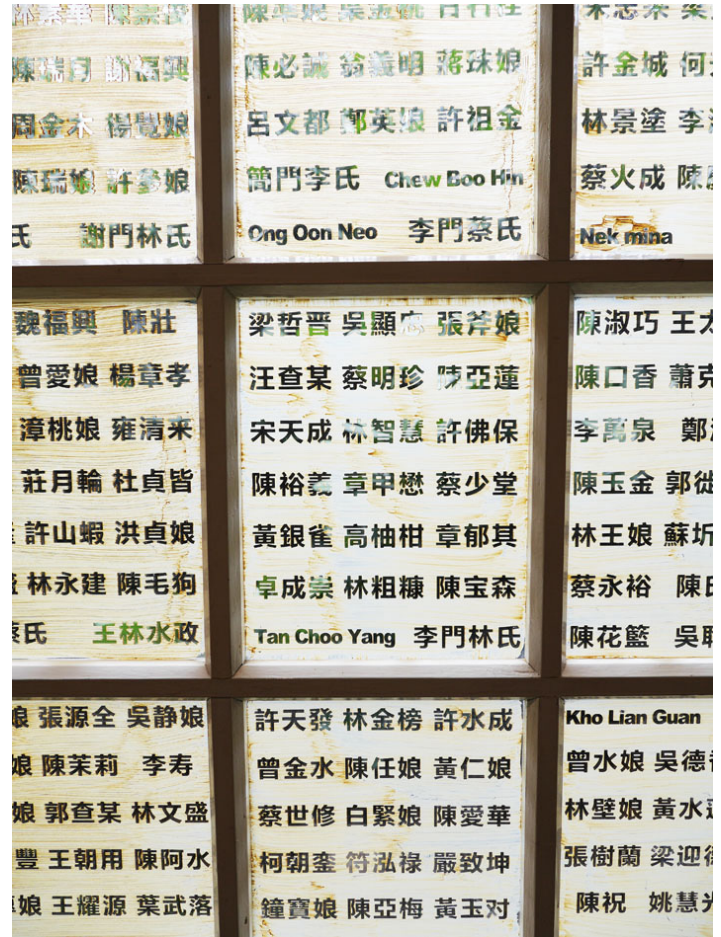 陳瑞月 謝福興
周金木 楊覺娘
陳瑞娘 許參娘
氏 謝門林氏
陳必誠 翁義明 蔣珠娘
呂文都 鄭英娘 許祖金
簡門李氏 Chew Boo Hin
Ong Oon Neo 李門蔡氏
許金城 何
林景塗 李
蔡火成 陳
Nek mina
魏福興 陳壯
曾愛娘 楊章孝
漳桃娘 雍清来
莊月輪 杜貞皆
許山蝦 洪貞娘
林永建 陳毛狗
蔡氏 王林水政
梁哲晋 吳顯 張斧娘
汪查某 蔡明珍 陳亞蓮
宋天成 林智慧 許佛保
陳裕義 章甲懋 蔡少堂
黃銀雀 高柚柑 章郁其
卓成崇 林粗糠 陳宝森
Tan Choo Yang 李門林氏
陳淑巧 王
陳口香 蕭
李萬泉 鄭
陳玉金 郭
林王娘 蘇
蔡永裕 陳
陳花籃 吳
娘 張源全 吳静娘
娘 陳茉莉 李寿
娘 郭查某 林文盛
豐 王朝用 陳阿水
娘 王耀源 葉武落
許天發 林金榜 許水成
曾金水 陳任娘 黃仁娘
蔡世修 白緊娘 陳愛華
柯朝銮 符泓祿 嚴致坤
鐘寶娘 陳亞梅 黃玉对
Kho Lian Guan
曾水娘 吳德
林壁娘 黃水
張樹蘭 梁迎
陳祝 姚慧